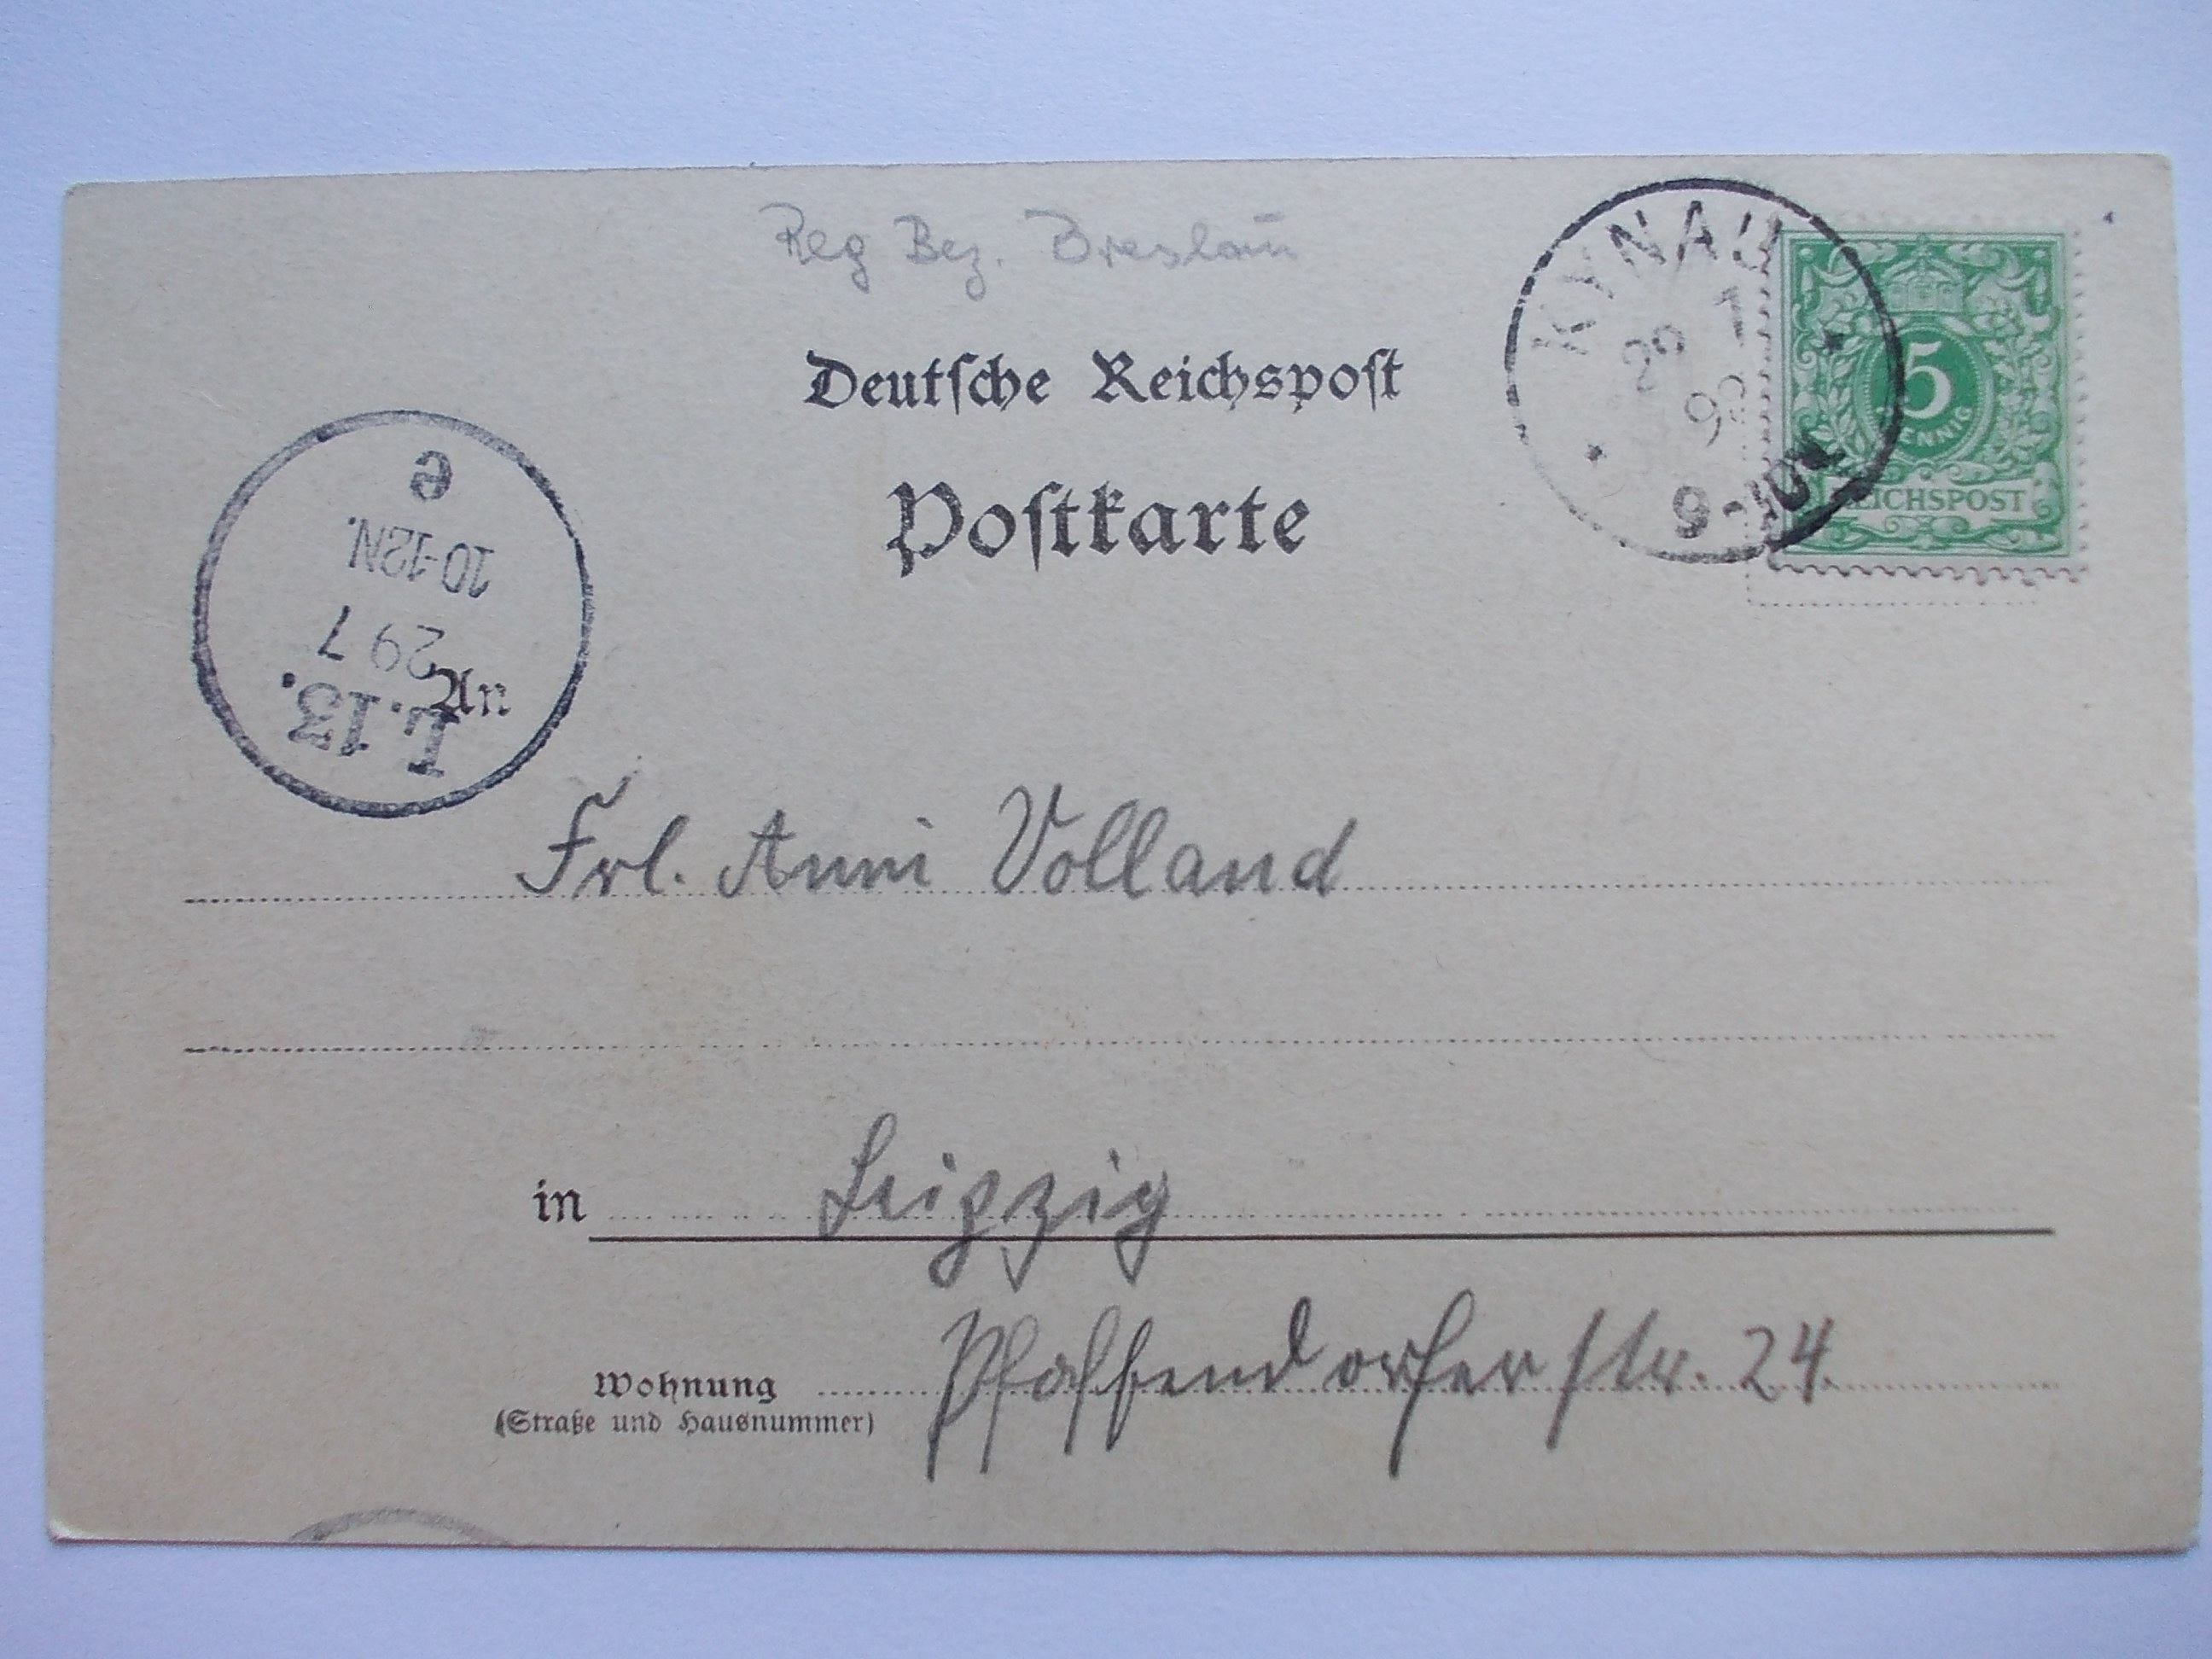 Reg Bez. Breslau
Deutsche Reichspost
Postkarte
KYNAU
29 7
9-10V
5
PFENNIG
REICHSPOST
e
10-12N.
29 7
L.13.
An
Frl. Anni Volland
in Leipzig
Wohnung Pfaffendorferstr. 24.
(Straße und Hausnummer)